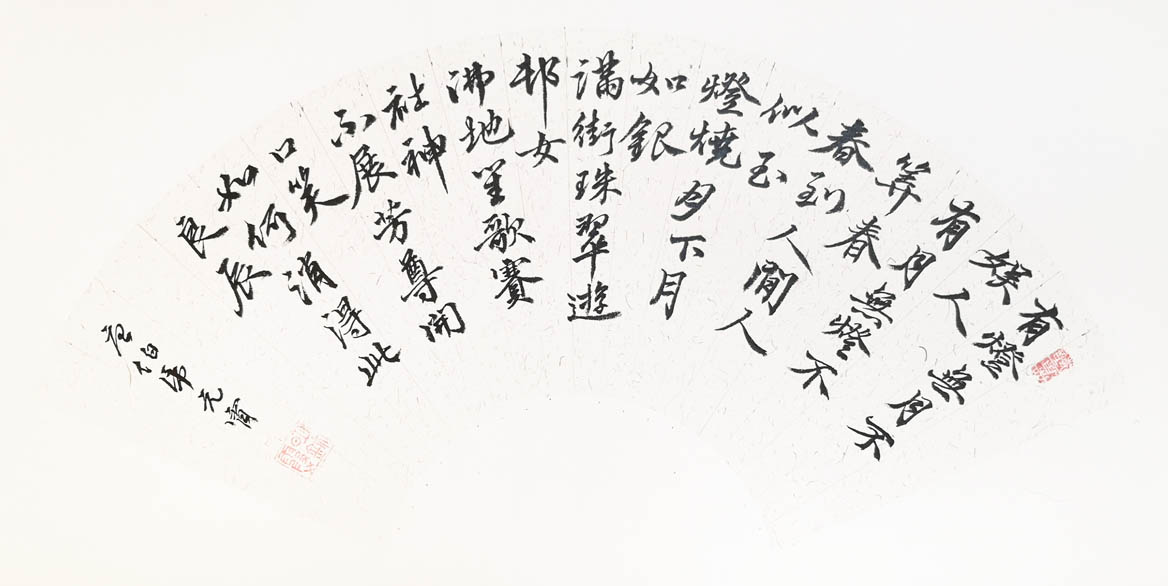 有燈無月不
娱人
有月無燈不
算春
春到人間人
似玉
燈燒月下月
如銀
滿街珠翠遊
邨女
沸地笙歌賽
社神
不展芳尊開
口笑
如何消得此
良辰
唐伯虎元宵